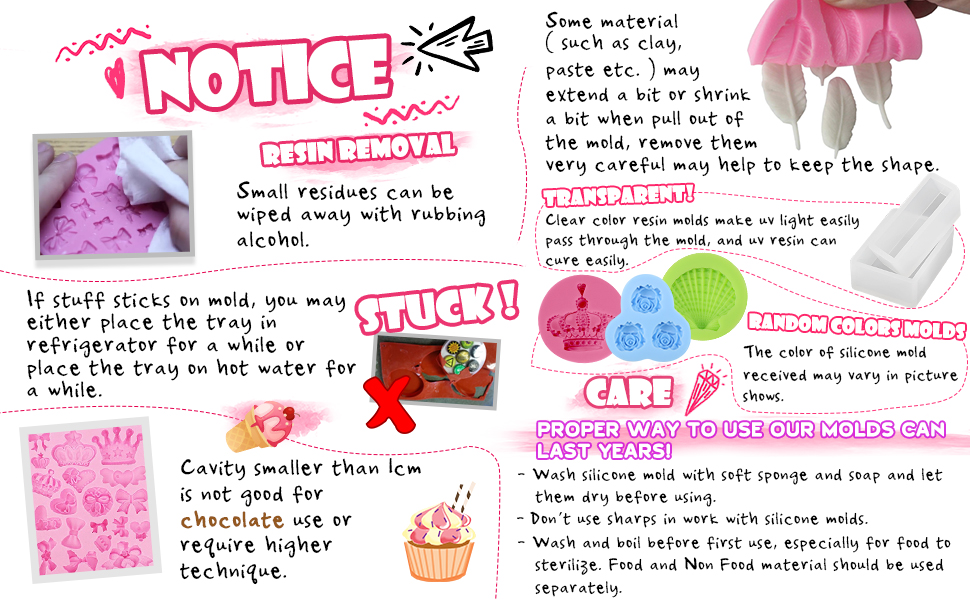 NOTICE
RESIN REMOVAL
Small residues can be
wiped away with rubbing
alcohol.
Some material
( such as clay,
paste etc. ) may
extend a bit or shrink
a bit when pull out of
the mold, remove them
very careful may help to keep the shape.
TRANSPARENT!
Clear color resin molds make uv light easily
pass through the mold, and uv resin can
cure easily.
If stuff sticks on mold, you may
either place the tray in
refrigerator for a while or
place the tray on hot water for
a while.
STUCK!
RANDOM COLORS MOLDS
The color of silicone mold
received may vary in picture
shows.
Cavity smaller than 1cm
is not good for
chocolate use or
require higher
technique.
CARE
PROPER WAY TO USE OUR MOLDS CAN
LAST YEARS!
- Wash silicone mold with soft sponge and soap and let
them dry before using.
- Don't use sharps in work with silicone molds.
- Wash and boil before first use, especially for food to
sterilize. Food and Non Food material should be used
separately.